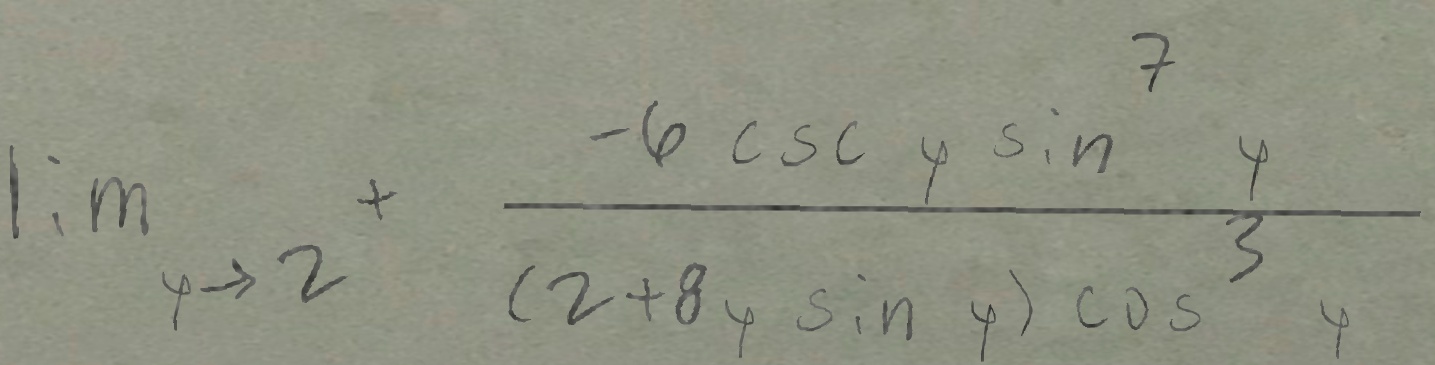 \lim_{y \to 2^+} \frac{-6 \csc y \sin^7 y}{(2 + 8y \sin y) \cos^3 y}